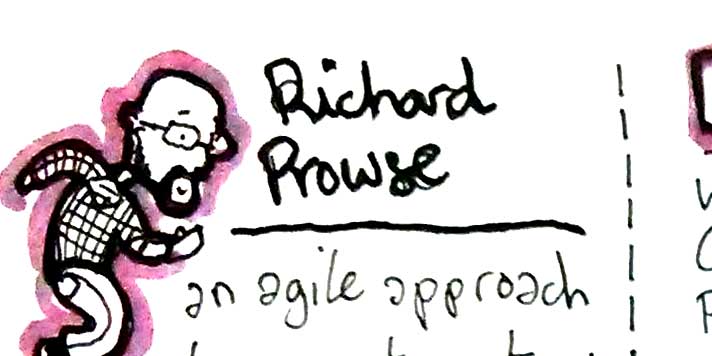 Richard
Prowse
an agile approach